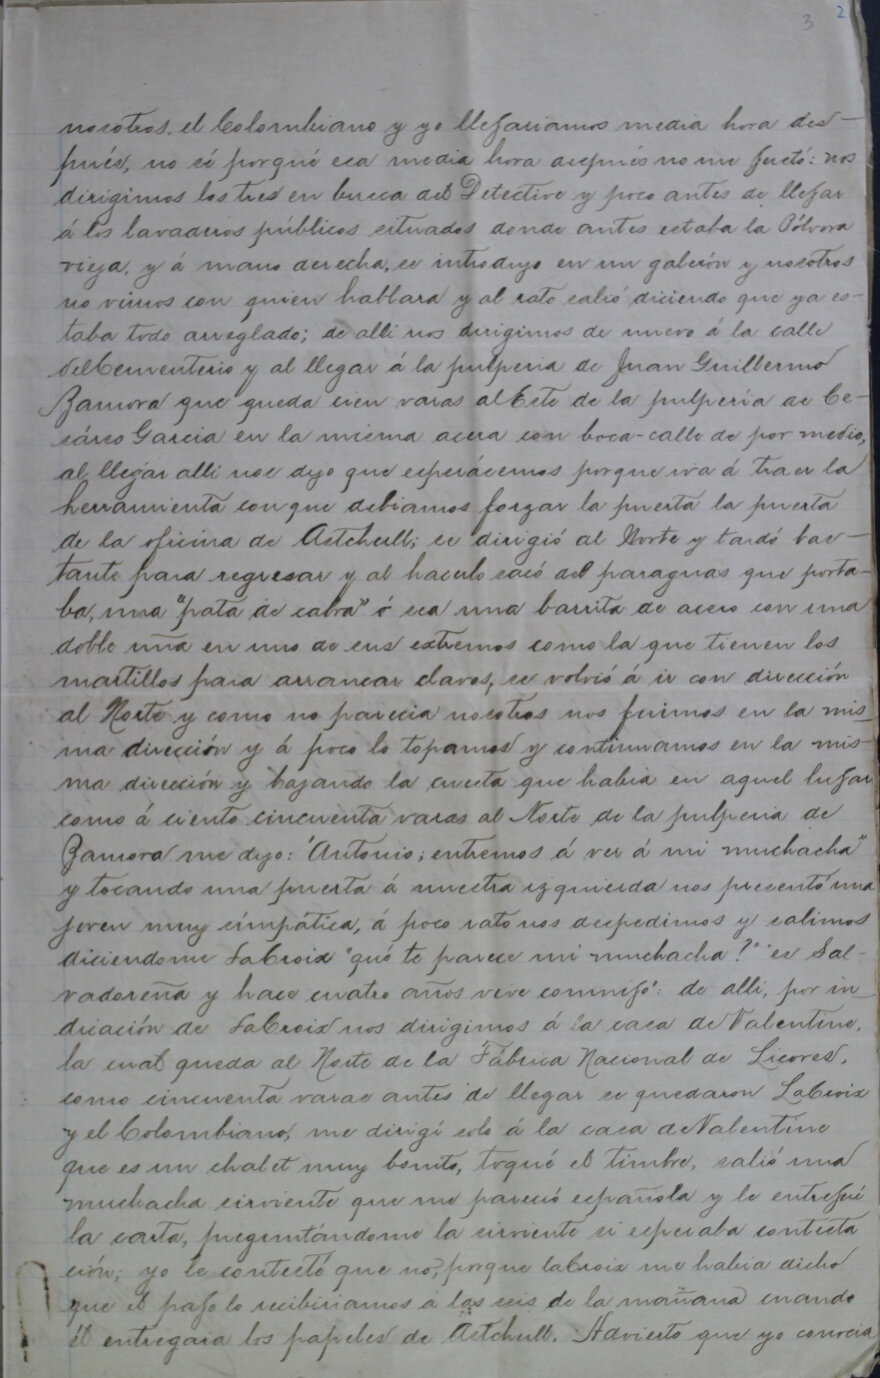 3 2
nosotros, el Colombiano y yo llegariamos media hora des-
pués, no sé porqué esa media hora despues no me gustó: nos
dirigimos los tres en busca del Detective y poco antes de llegar
á los lavaderos públicos situados donde antes estaba la Pólvora
vieja, y á mano derecha, se introdujo en un galerón y nosotros
no vimos con quien hablara y al rato salió diciendo que ya es-
taba todo arreglado; de alli nos dirigimos de nuevo á la calle
del Cementerio y al llegar á la pulperia de Juan Guillermo
Zamora que queda cien varas al Este de la pulpería de Ce-
sáreo Garcia en la misma acera con boca-calle de por medio,
al llegar alli nos dijo que esperácemos porque iva á traer la
herramienta con que debiamos forzar la puerta la puerta
de la oficina de Astchull; se dirigió al Norte y tardó bas-
tante para regresar y al hacerlo sacó del paraguas que porta-
ba, una "pata de cabra" ó sea una barrita de acero con una
doble uña en uno de sus extremos como la que tienen los
martillos para arrancar clavos, se volvió á ir con dirección
al Norte y como no parecia nosotros nos fuimos en la mis-
ma dirección y á poco lo topamos y continuamos en la mis-
ma dirección y bajando la cuesta que habia en aquel lugar
como á ciento cincuenta varas al Norte de la pulperia de
Zamora me dijo: "Antonio; entremos á ver á mi muchacha"
y tocando una puerta á nuestra izquierda nos presentó una
joven muy símpática, á poco rato nos despedimos y salimos
diciendome LaCroix "qué te parece mi muchacha?" "es Sal-
vadoreña y hace cuatro años vive conmigo": de alli, por in-
dicación de LaCroix nos dirigimos á la casa de Valentine,
la cual queda al Norte de la Fábrica Nacional de Licores,
como cincuenta varas antes de llegar se quedaron LaCroix
y el Colombiano, me dirigí solo á la casa de Valentine
que es un chalet muy bonito, toqué el timbre, salió una
muchacha sirviente que me pareció española y le entregué
la carta, preguntándome la sirviente si esperaba contesta
ción; yo le contesté que no, porque laCroix me habia dicho
que el pago lo recibiriamos á las seis de la mañana cuando
él entregara los papeles de Astchull. Advierto que yo conocia